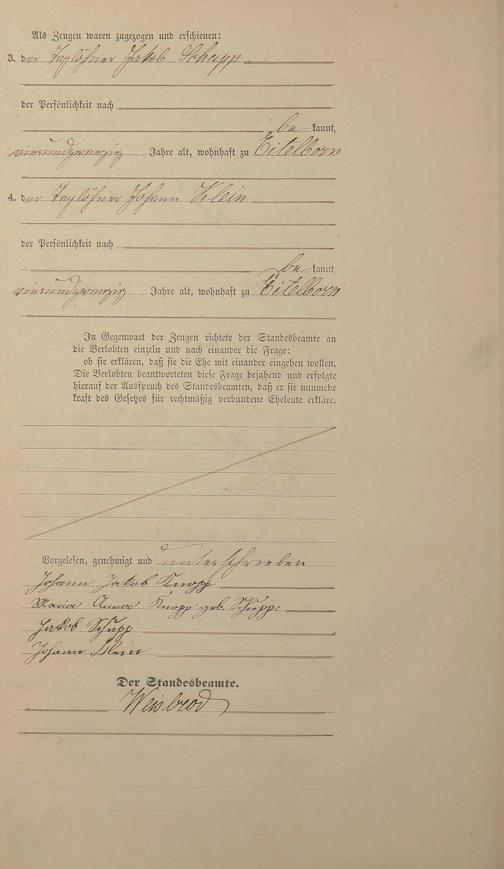 Als Zeugen waren zugezogen und erschienen:
3. der Taglöhner Jakob Schupp
der Persönlichkeit nach
be kannt,
vierundzwanzig Jahre alt, wohnhaft zu Eitelborn
4. der Taglöhner Johann Klein
der Persönlichkeit nach
be kannt,
vierundzwanzig Jahre alt, wohnhaft zu Eitelborn
In Gegenwart der Zeugen richtete der Standesbeamte an
die Verlobten einzeln und nach einander die Frage:
ob sie erklären, daß sie die Ehe mit einander eingehen wollen.
Die Verlobten beantworteten diese Frage bejahend und erfolgte
hierauf der Ausspruch des Standesbeamten, daß er sie nunmehr
kraft des Gesetzes für rechtmäßig verbundene Eheleute erkläre.
Vorgelesen, genehmigt und unterschrieben
Johann Jakob Knopp
Maria Anna Knopp geb. Schupp
Jakob Schupp
Johann Klein
Der Standesbeamte.
Weisbrod